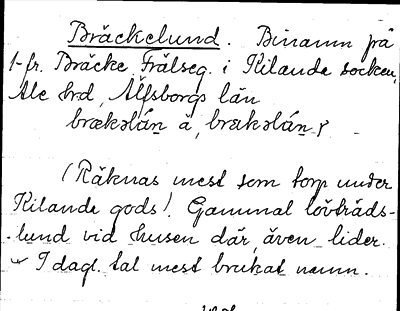 Bräckelund. Binamn på
1-fr. Bräcke Frälseg. i Kilanda socken,
Ale hrd, Älfsborgs län
brækəlún̠ å, brækəlún̠

(Räknas mest som torp under
Kilanda gods). Gammal lövträds-
-lund vid husen där, även lider.
I dagl. tal mest brukat namn.